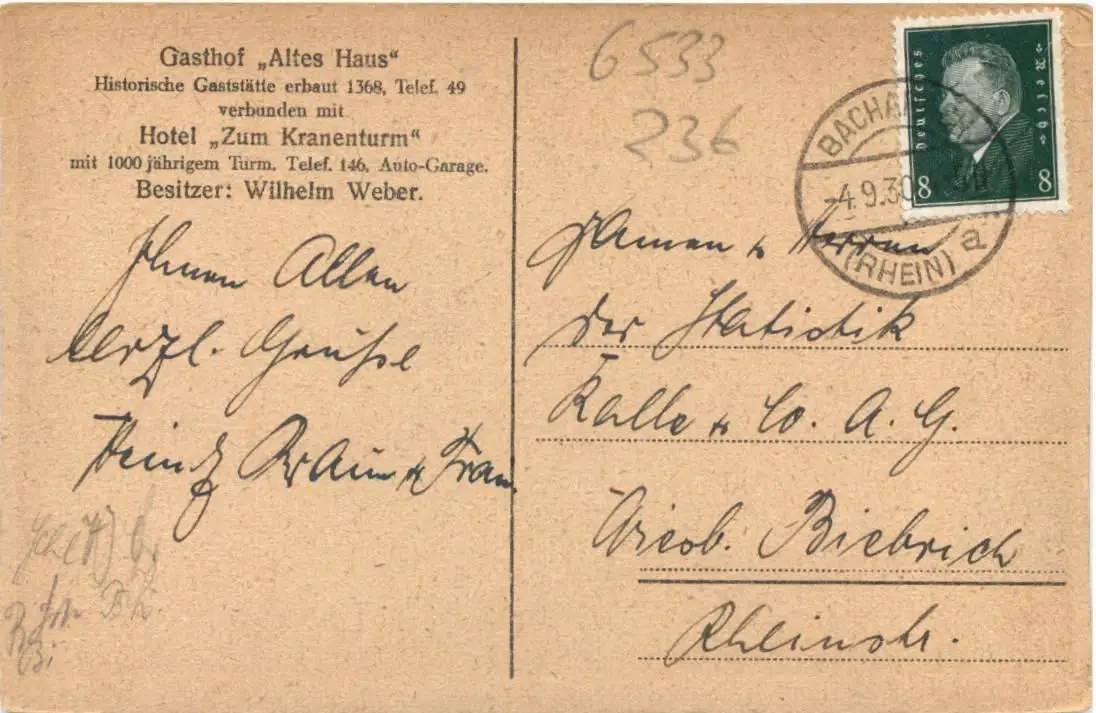 Gasthof „Altes Haus“
Historische Gaststätte erbaut 1368, Telef. 49
verbunden mit
Hotel „Zum Kranenturm“
mit 1000 jährigem Turm. Telef. 146, Auto-Garage.
Besitzer: Wilhelm Weber.
Ihnen Allen
herzl. Grüße
Heinz Braun u Frau
6533
236
Deutsches Reich
8 8
BACHA
-4.9.30
(RHEIN) a
Damen u Herren
der Statistik
Kalle u Co. A. G.
Wiesb. Biebrich
Rheinstr.